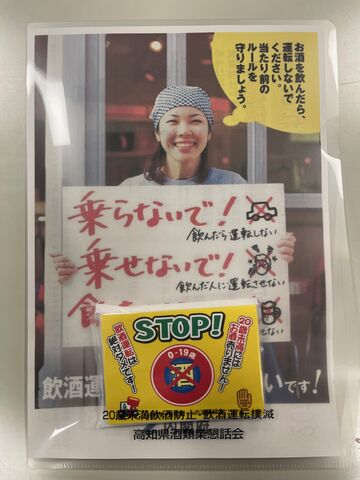 お酒を飲んだら、
運転しないで
ください。
当たり前の
ルールを
守りましょう。
乗らないで!
飲んだら運転しない
乗せないで!
飲んだ人に運転させない
飲
20歳未満には
お酒売りません!
STOP!
0-19歳
飲酒運転は
絶対ダメです!
飲酒運
いです!
20歳未満飲酒防止・飲酒運転撲滅
内閣府
高知県酒類業懇話会